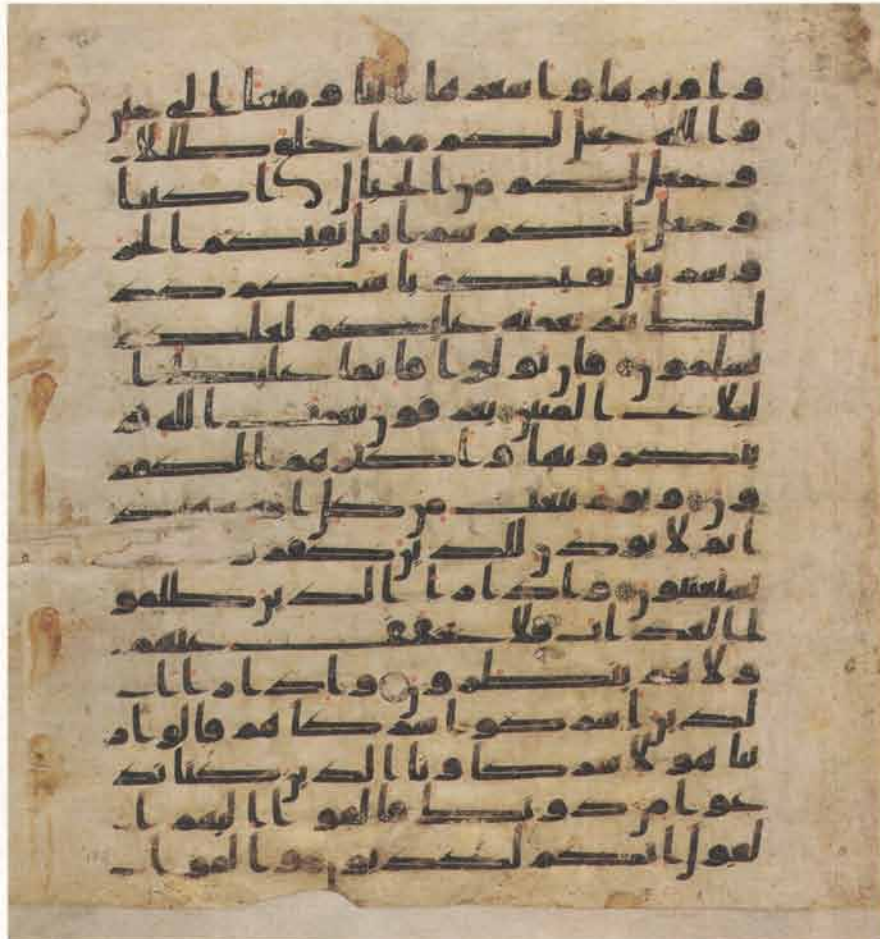 و اوبرها و اسعرها اثثا و متعا الى حين
و الله جعل لكم مما خلق ظللا
و جعل لكم من الجبال اكننا
و جعل لكم سربيل تقيكم الحر
و سربيل تقيكم باسكم كذ
لك يتم نعمته عليكم لعلكم
تسلمون فان تولوا فانما عليك ا
لبلاغ المبين يعرفون نعمت الله ثم
ينكرونها و اكثرهم الكفر
ون و يوم نبعث من كل امه شهيد
ا ثم لا يوذن للذين كفروا
يستعتبون و اذا را الذين ظلمو
ا العذاب فلا يخفف عنهم
و لا هم ينظرون و اذا را ا
لذين اشركوا شركاهم قالوا ر
بنا هولا شركاونا الذين كنا ند
عوا من دونك فالقوا اليهم ا
لقول انكم لكذبون و القوا ا